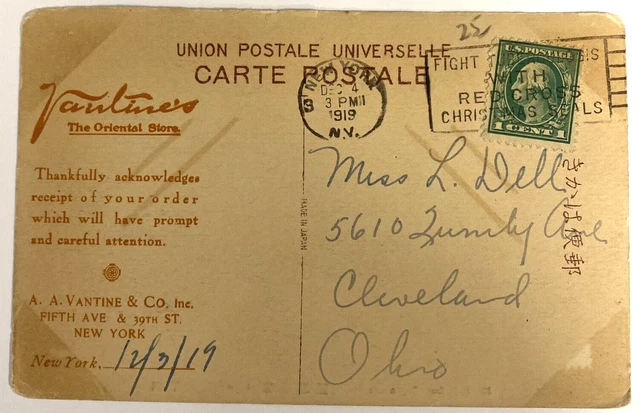 25
UNION POSTALE UNIVERSELLE
CARTE POSTALE
Vantine's
The Oriental Store.
Thankfully acknowledges
receipt of your order
which will have prompt
and careful attention.
A. A. VANTINE & CO. Inc.
FIFTH AVE & 39TH ST.
NEW YORK
New York, 12/3/19
NEW YORK
DEC 4
3 PM
1919
N.Y.
FIGHT
WITH
RED CROSS
CHRISTMAS SEALS
U.S. POSTAGE
1 CENT 1
MADE IN JAPAN
Miss L. Dell
5610 Quimby Ave
Cleveland
Ohio
郵便はかき